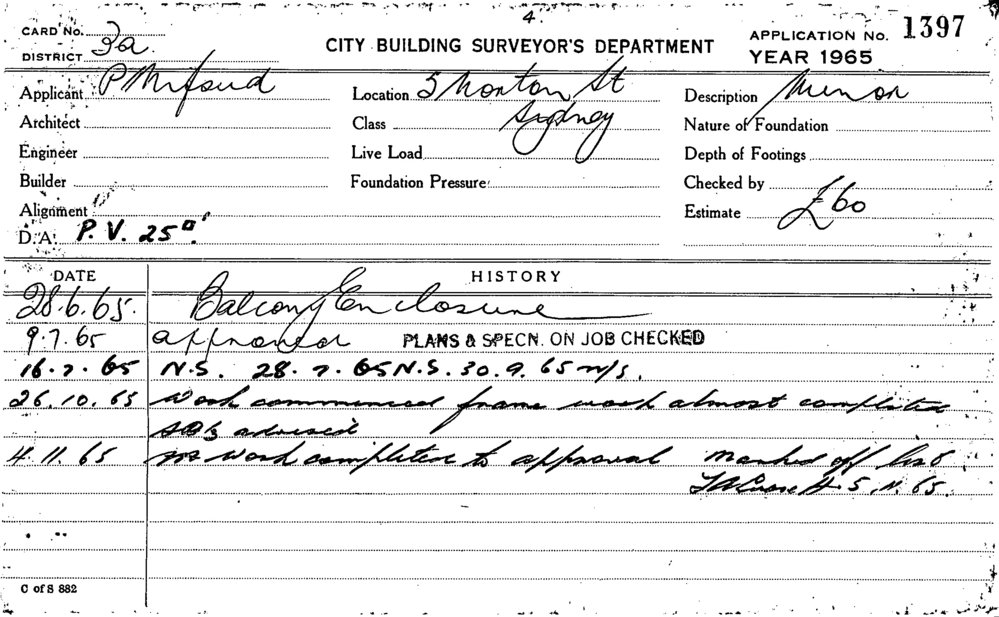 4.
CARD No. 3a
DISTRICT
CITY BUILDING SURVEYOR'S DEPARTMENT
APPLICATION No. 1397
YEAR 1965
Applicant P Mifsud Location 5 Norton St Description Minor
Architect Class Sydney Nature of Foundation
Engineer Live Load Depth of Footings
Builder Foundation Pressure Checked by
Alignment Estimate £60
D.A. P.V. 25
DATE HISTORY
28.6.65. Balcony Enclosure
9.7.65 approved PLANS & SPECN. ON JOB CHECKED
16.7.65 N.S. 28.7.65 N.S. 30.9.65 N/S.
26.10.65 Work commenced frame work almost completed
advised
4.11.65 work completed to approval marked off list
5.11.65.
C of S 882